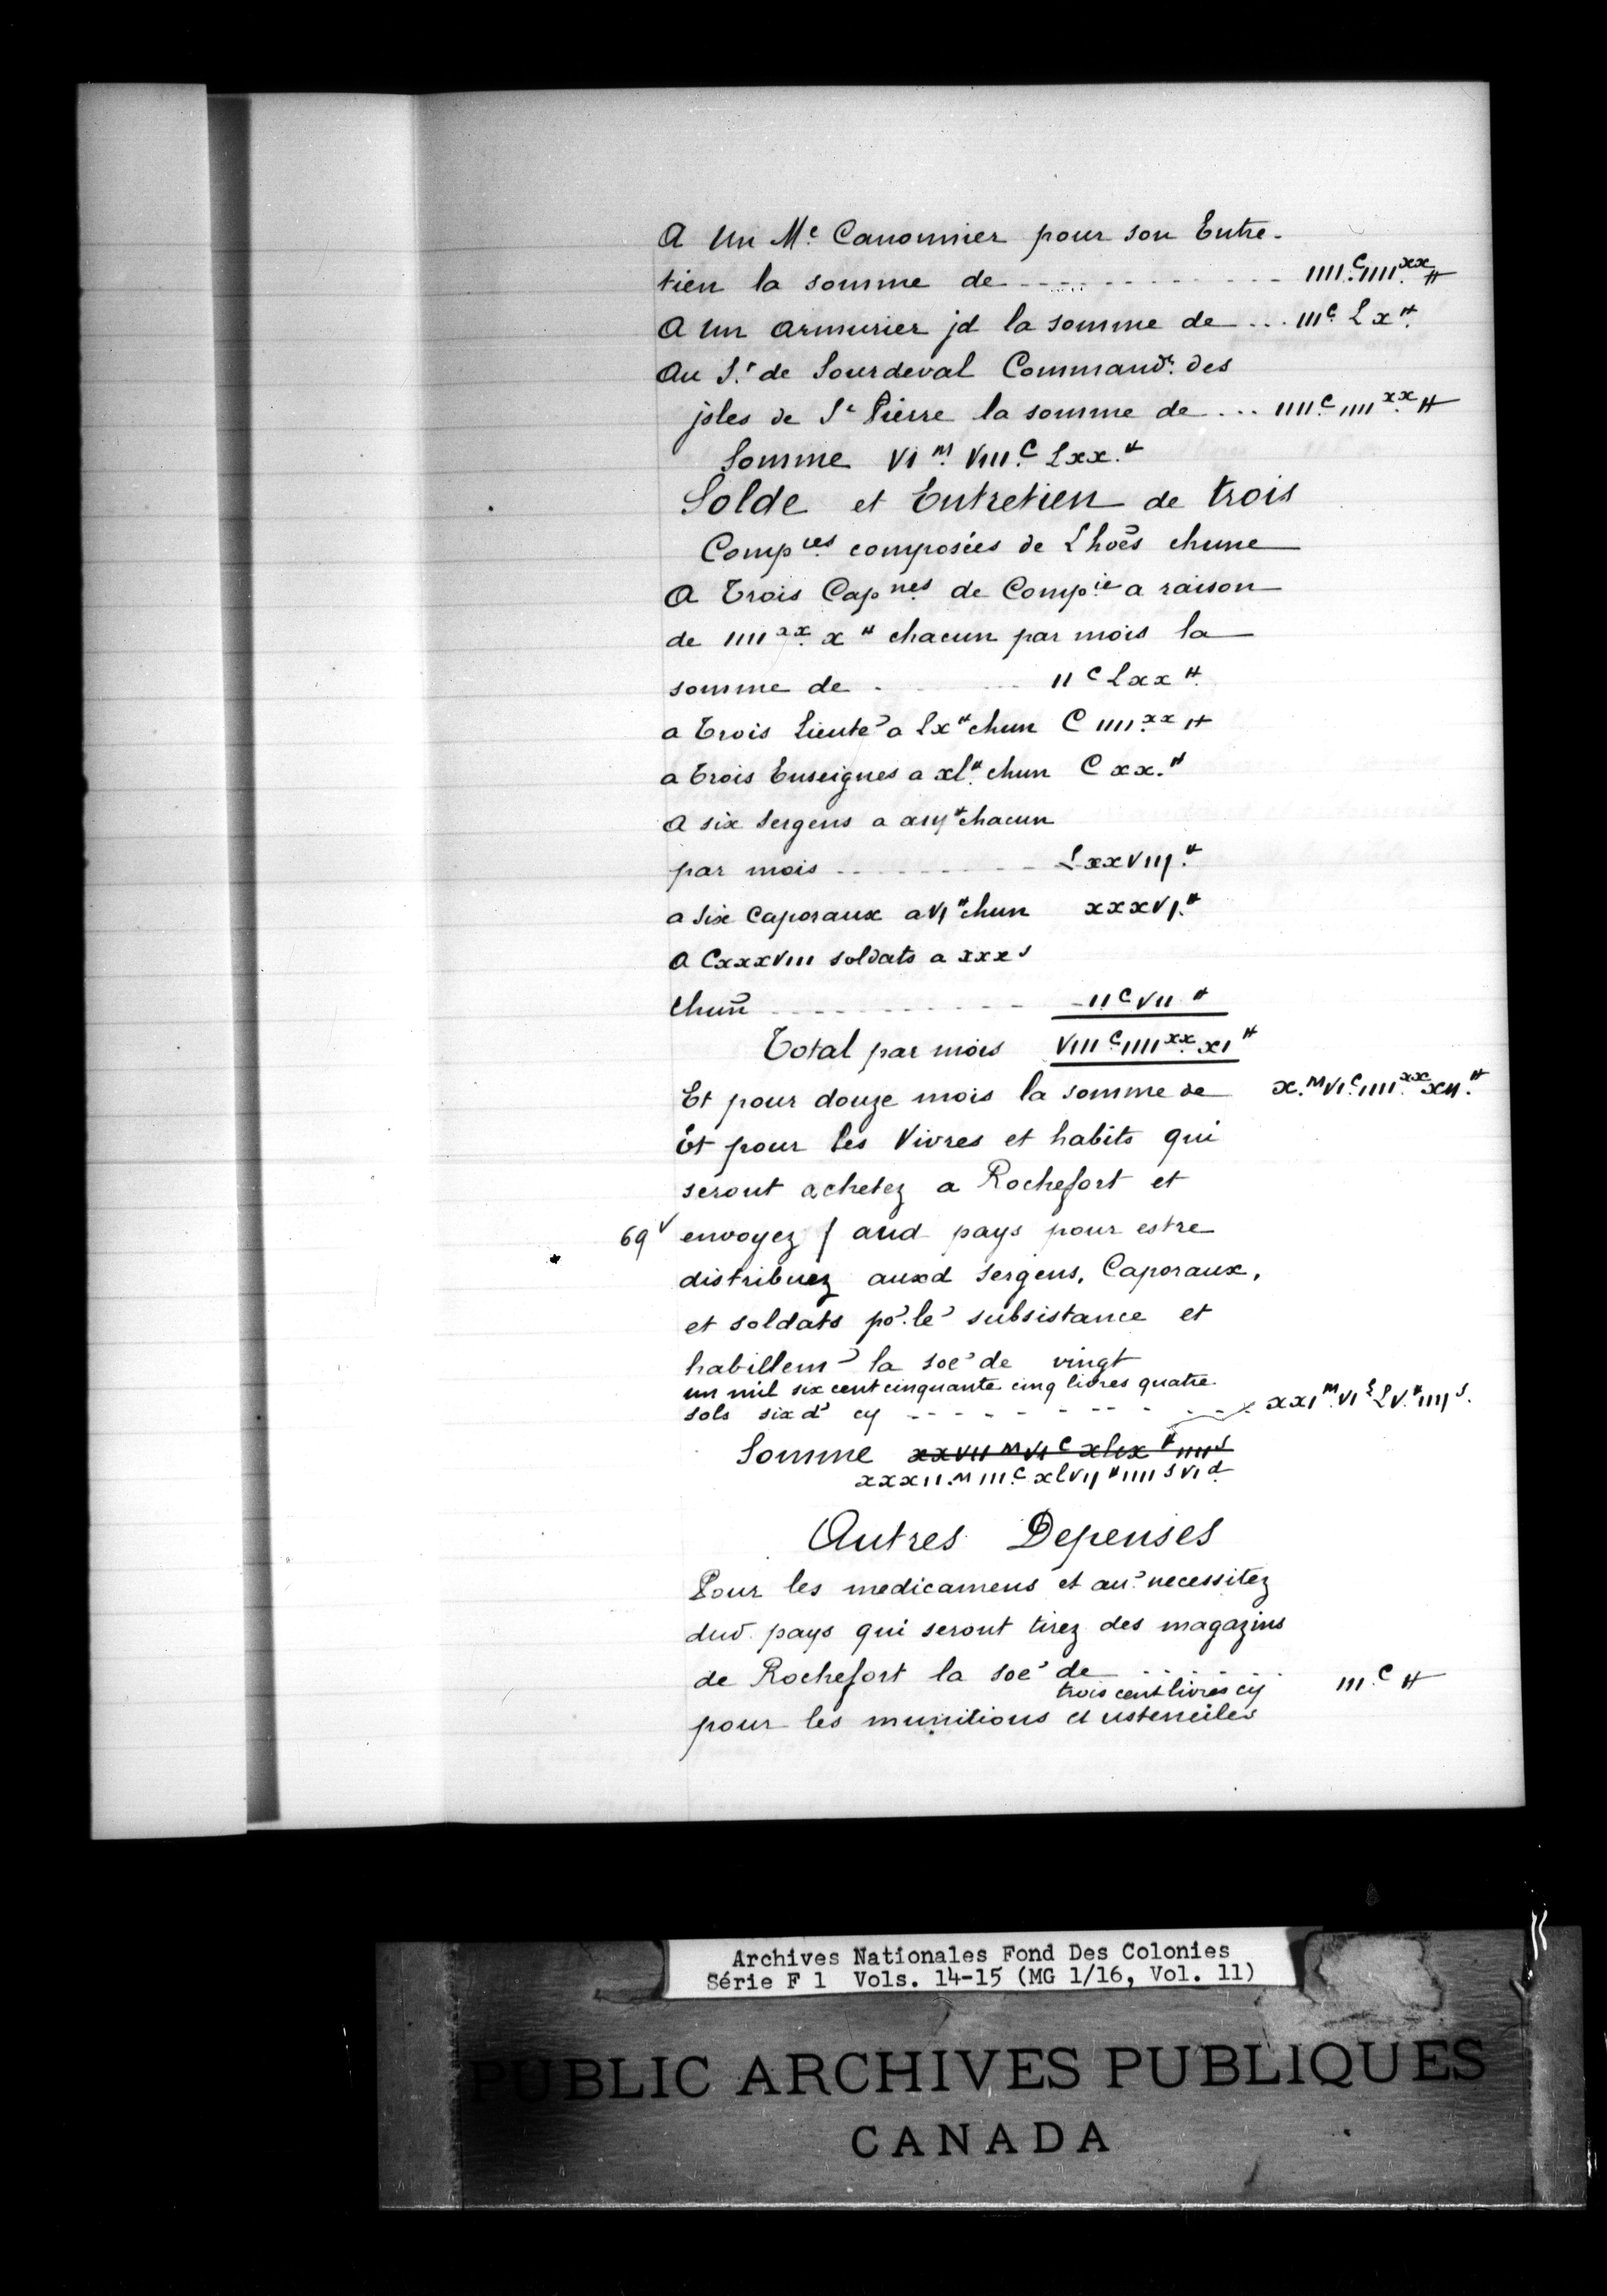 A Un Me. Canonnier pour son Entre-
tien la somme de - - - - - - - - - - - IIII.C IIII.xx ₶
A Un armurier jd la somme de ... III.C Lx ₶.
Au Sr. de Sourdeval Commandr. des
jsles de St Pierre la somme de ... IIII.C IIII.xx ₶
Somme VI M. VIII.C Lxx. ₶
Solde et Entretien de trois
Compies. composées de L hoēs chune
A Trois Capnes. de Compie. a raison
de IIII xx. x ₶ chacun par mois la
somme de - - - II C Lxx ₶.
a Trois Lieuts a Lx ₶ chun C IIII.xx ₶
a trois Enseignes a xl.₶ chun C xx. ₶
A six Sergens a xiij ₶ chacun
par mois - - - - - - - - - LxxVIIJ. ₶
a six Caporaux a VJ ₶ chun xxxVJ. ₶
A CxxxVIII soldats a xxx s
chun̄ - - - - - - - - - - - II C VII ₶
Total par mois VIII C. IIII xx. xI ₶
Et pour douze mois la somme de x. M VI C. IIII. xx xII. ₶
Et pour les Vivres et habits qui
seront achetez a Rochefort et
69 v envoyez / aud pays pour estre
distribuez auxd Sergens, Caporaux,
et soldats po'. le' subsistance et
habillem' la soe' de vingt
un mil six cent cinquante cinq livres quatre
sols six d' cy - - - - - - - - - - xxI M. VI C LV. ₶ IIIJ s.
Somme xxVII M VI C xLIx ₶ IIII s
xxxII. M III. C xLVIJ ₶ IIII s VI d.
Autres Depenses
Pour les medicamens et au' necessitez
dud. pays qui seront tirez des magazins
de Rochefort la soe' de - - - - - III. C ₶
trois cent livres cy
pour les munitions et ustenciles
Archives Nationales Fond Des Colonies
Série F 1 Vols. 14-15 (MG 1/16, Vol. 11)
PUBLIC ARCHIVES PUBLIQUES
CANADA